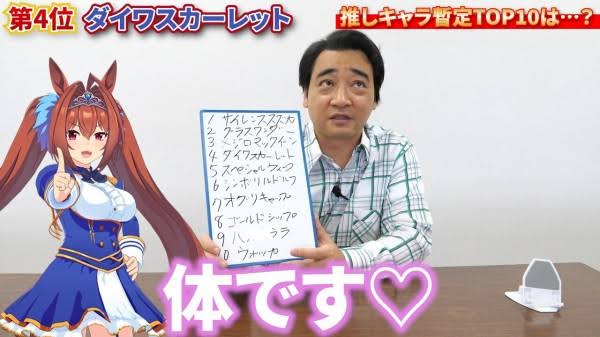 第4位 ダイワスカーレット
推しキャラ暫定TOP10は…?
1 サイレンススズカ
2 グラスワンダー
3 メジロマックイーン
4 ダイワスカーレット
5 スペシャルウィーク
6 シンボリルドルフ
7 オグリキャップ
8 ゴールドシップ
9 ハ、、ウララ
0 ウオッカ
体です♡